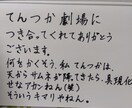 てんつか劇場に
つきあってくれてありがとう
ございます。
何をかくそう、私 てんつかは、
天からサムネが降てきたら、具現化
せなアカンねん(笑)
そういうキマリやねん。